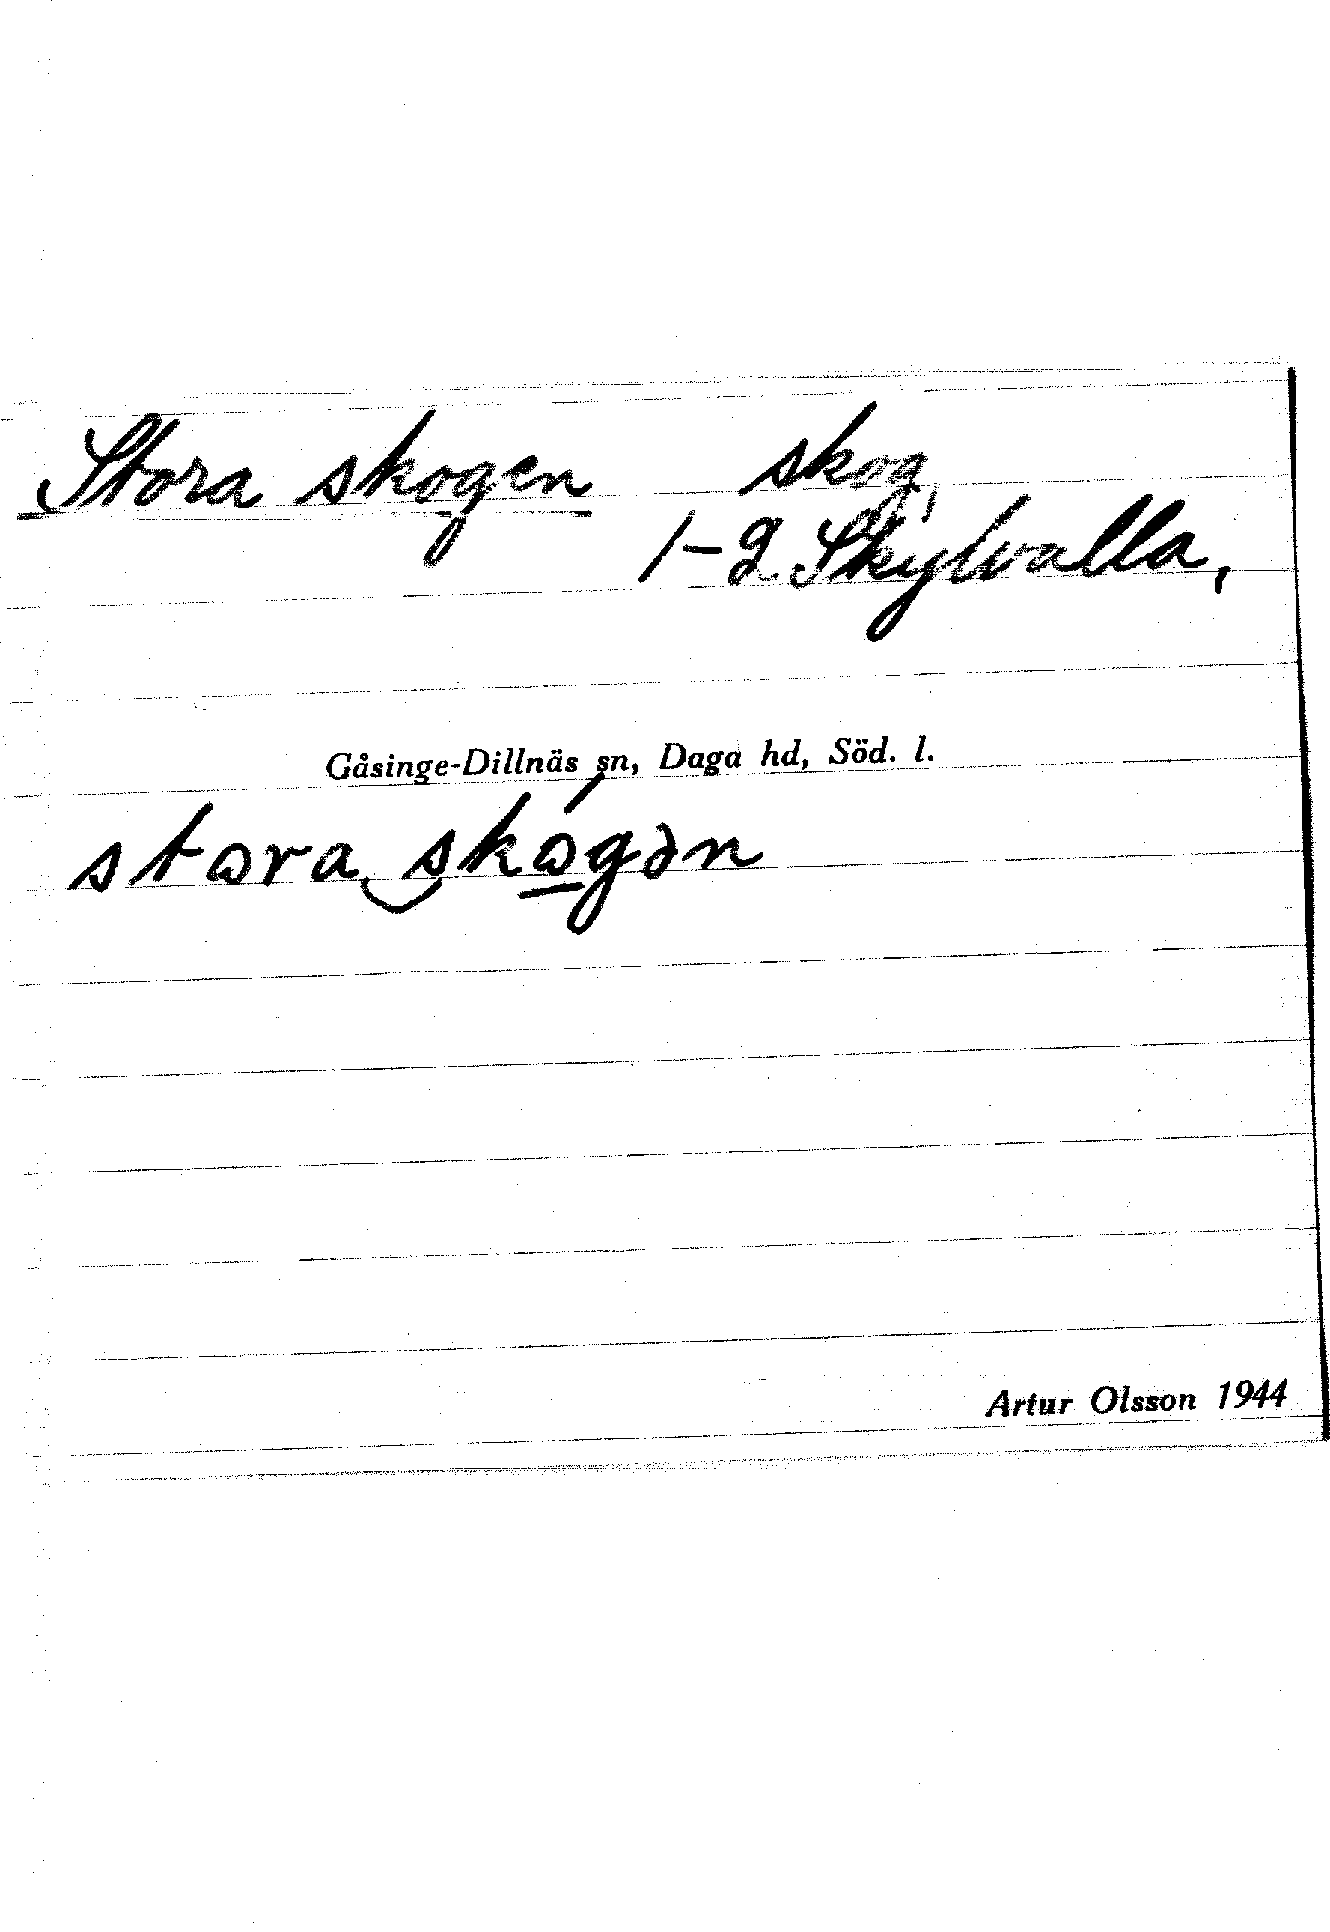 Stora skogen skog,
1-2 Skylvalla,
Gåsinge-Dillnäs sn, Daga hd, Söd. l.
stora skógən
Artur Olsson 1944